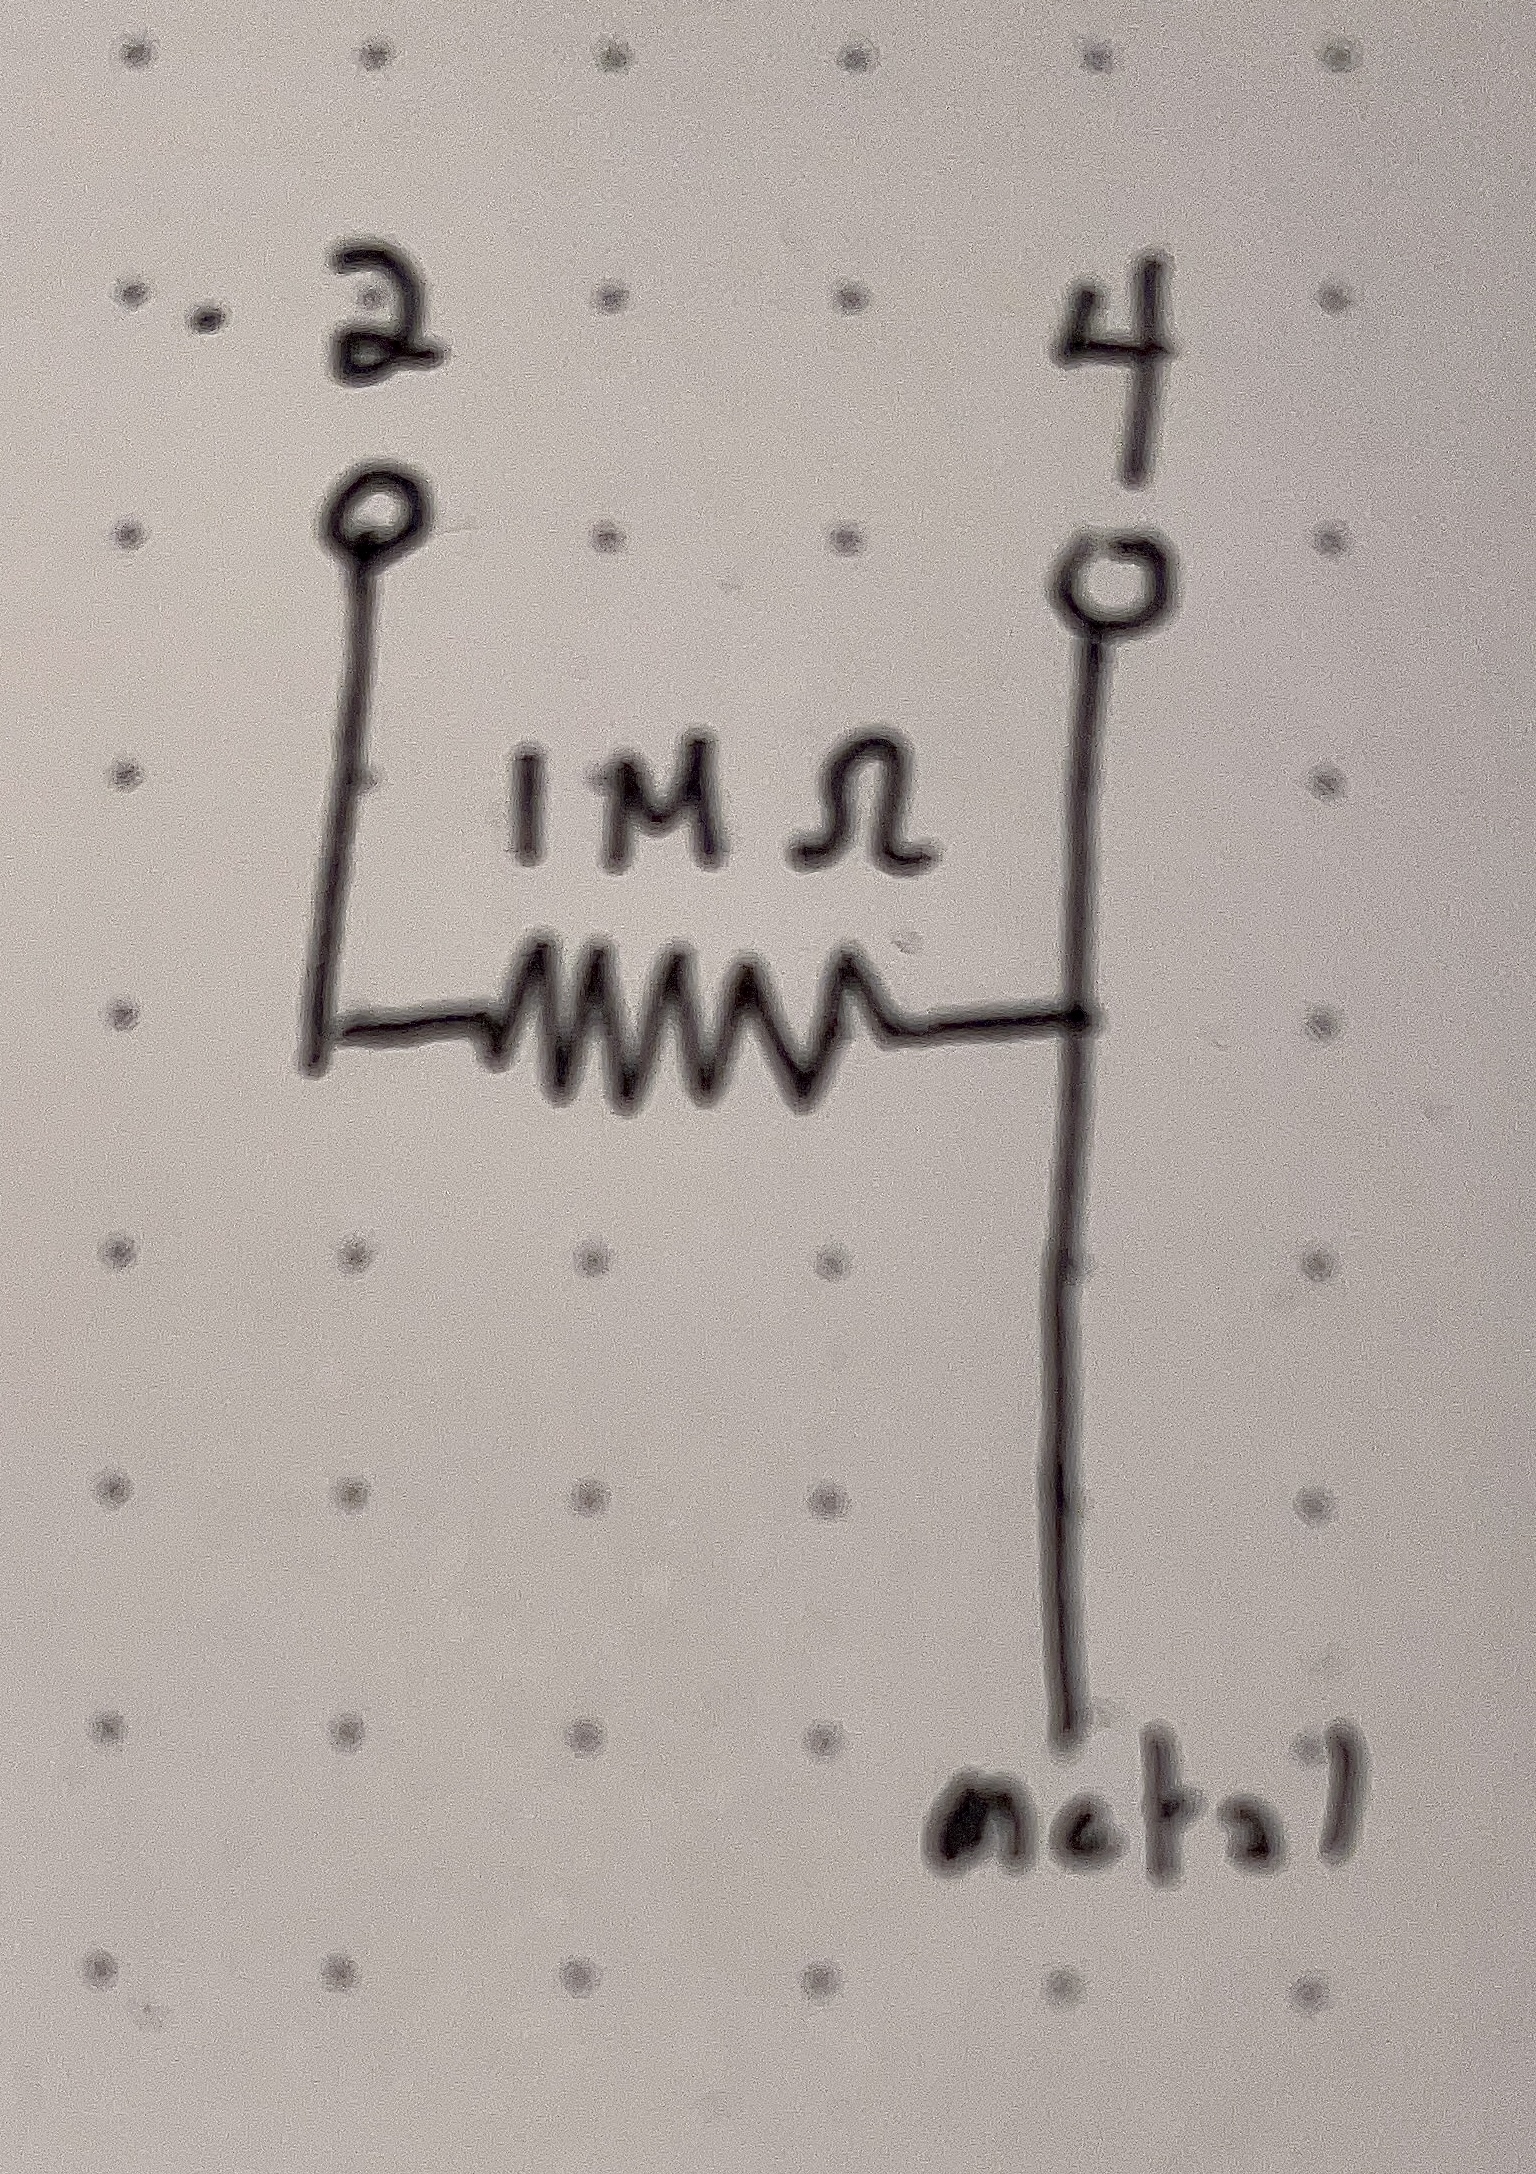 2 4
1 M Ω
metal